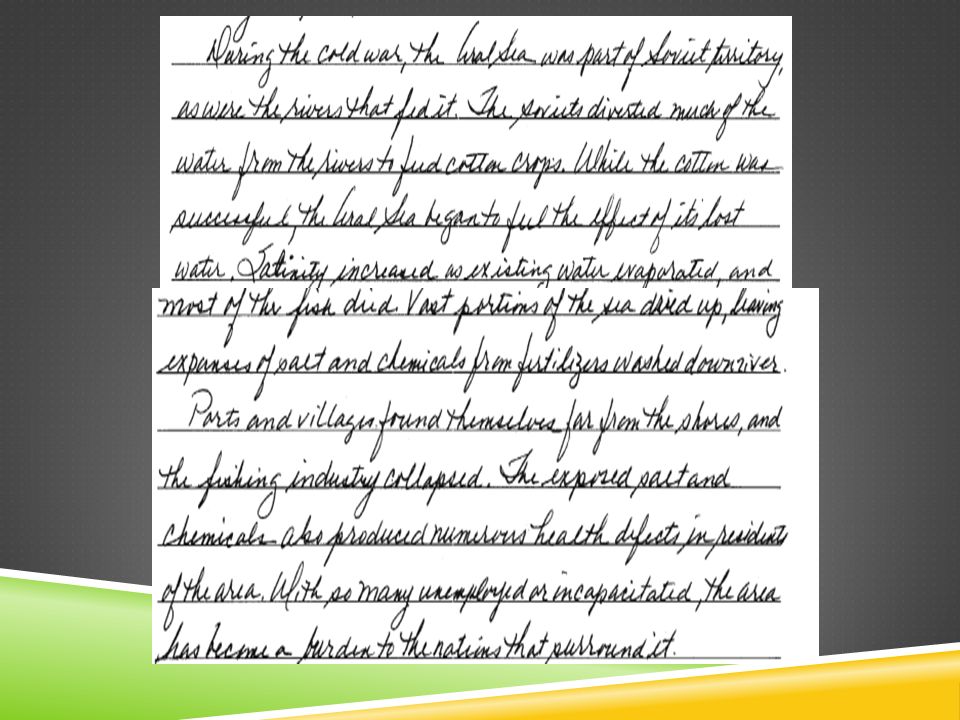 During the cold war, the Aral Sea was part of Soviet territory,
as were the rivers that fed it. The soviets diverted much of the
water from the rivers to feed cotton crops. While the cotton was
successful, the Aral Sea began to feel the effect of its lost
water. Salinity increased as existing water evaporated, and
most of the fish died. Vast portions of the sea dried up, leaving
expanses of salt and chemicals from fertilizers washed downriver.
Ports and villages found themselves far from the shores, and
the fishing industry collapsed. The exposed salt and
chemicals also produced numerous health defects in residents
of the area. With so many unemployed or incapacitated, the area
has become a burden to the nations that surround it.